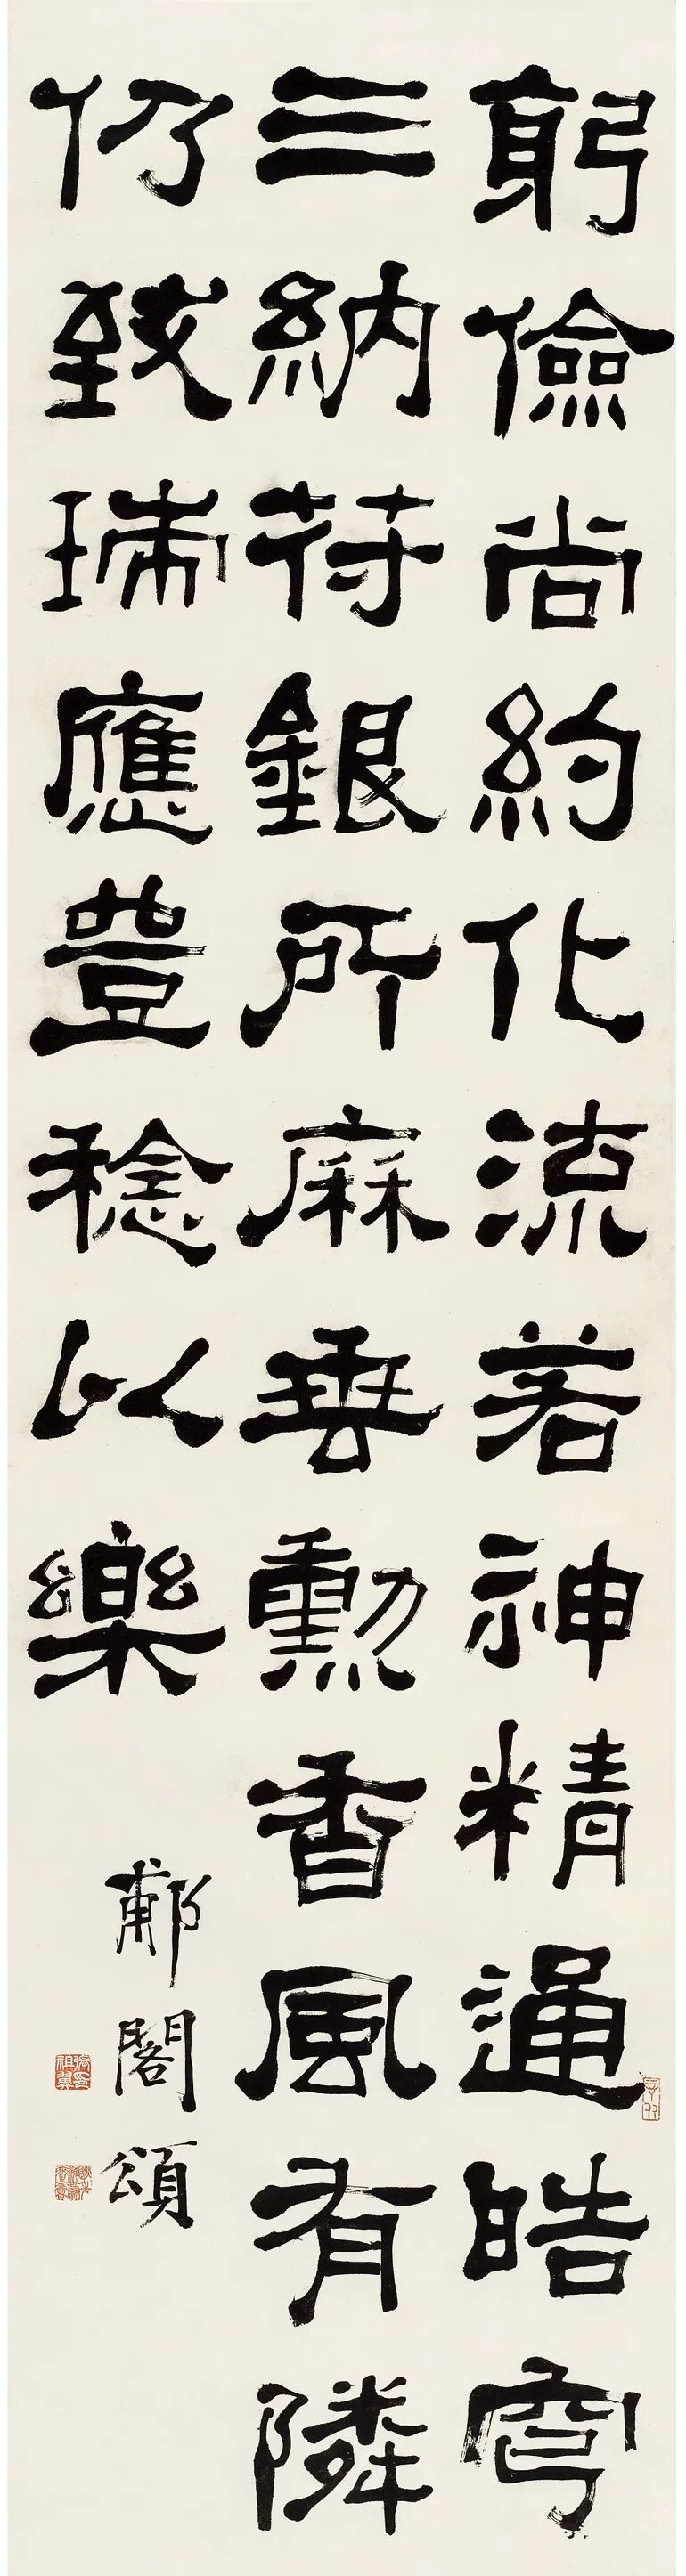 躬儉尚約化流若神精通皓穹
三納苻銀所麻垂勳香風有隣
仍致瑞應豊稔以樂
郙閣頌